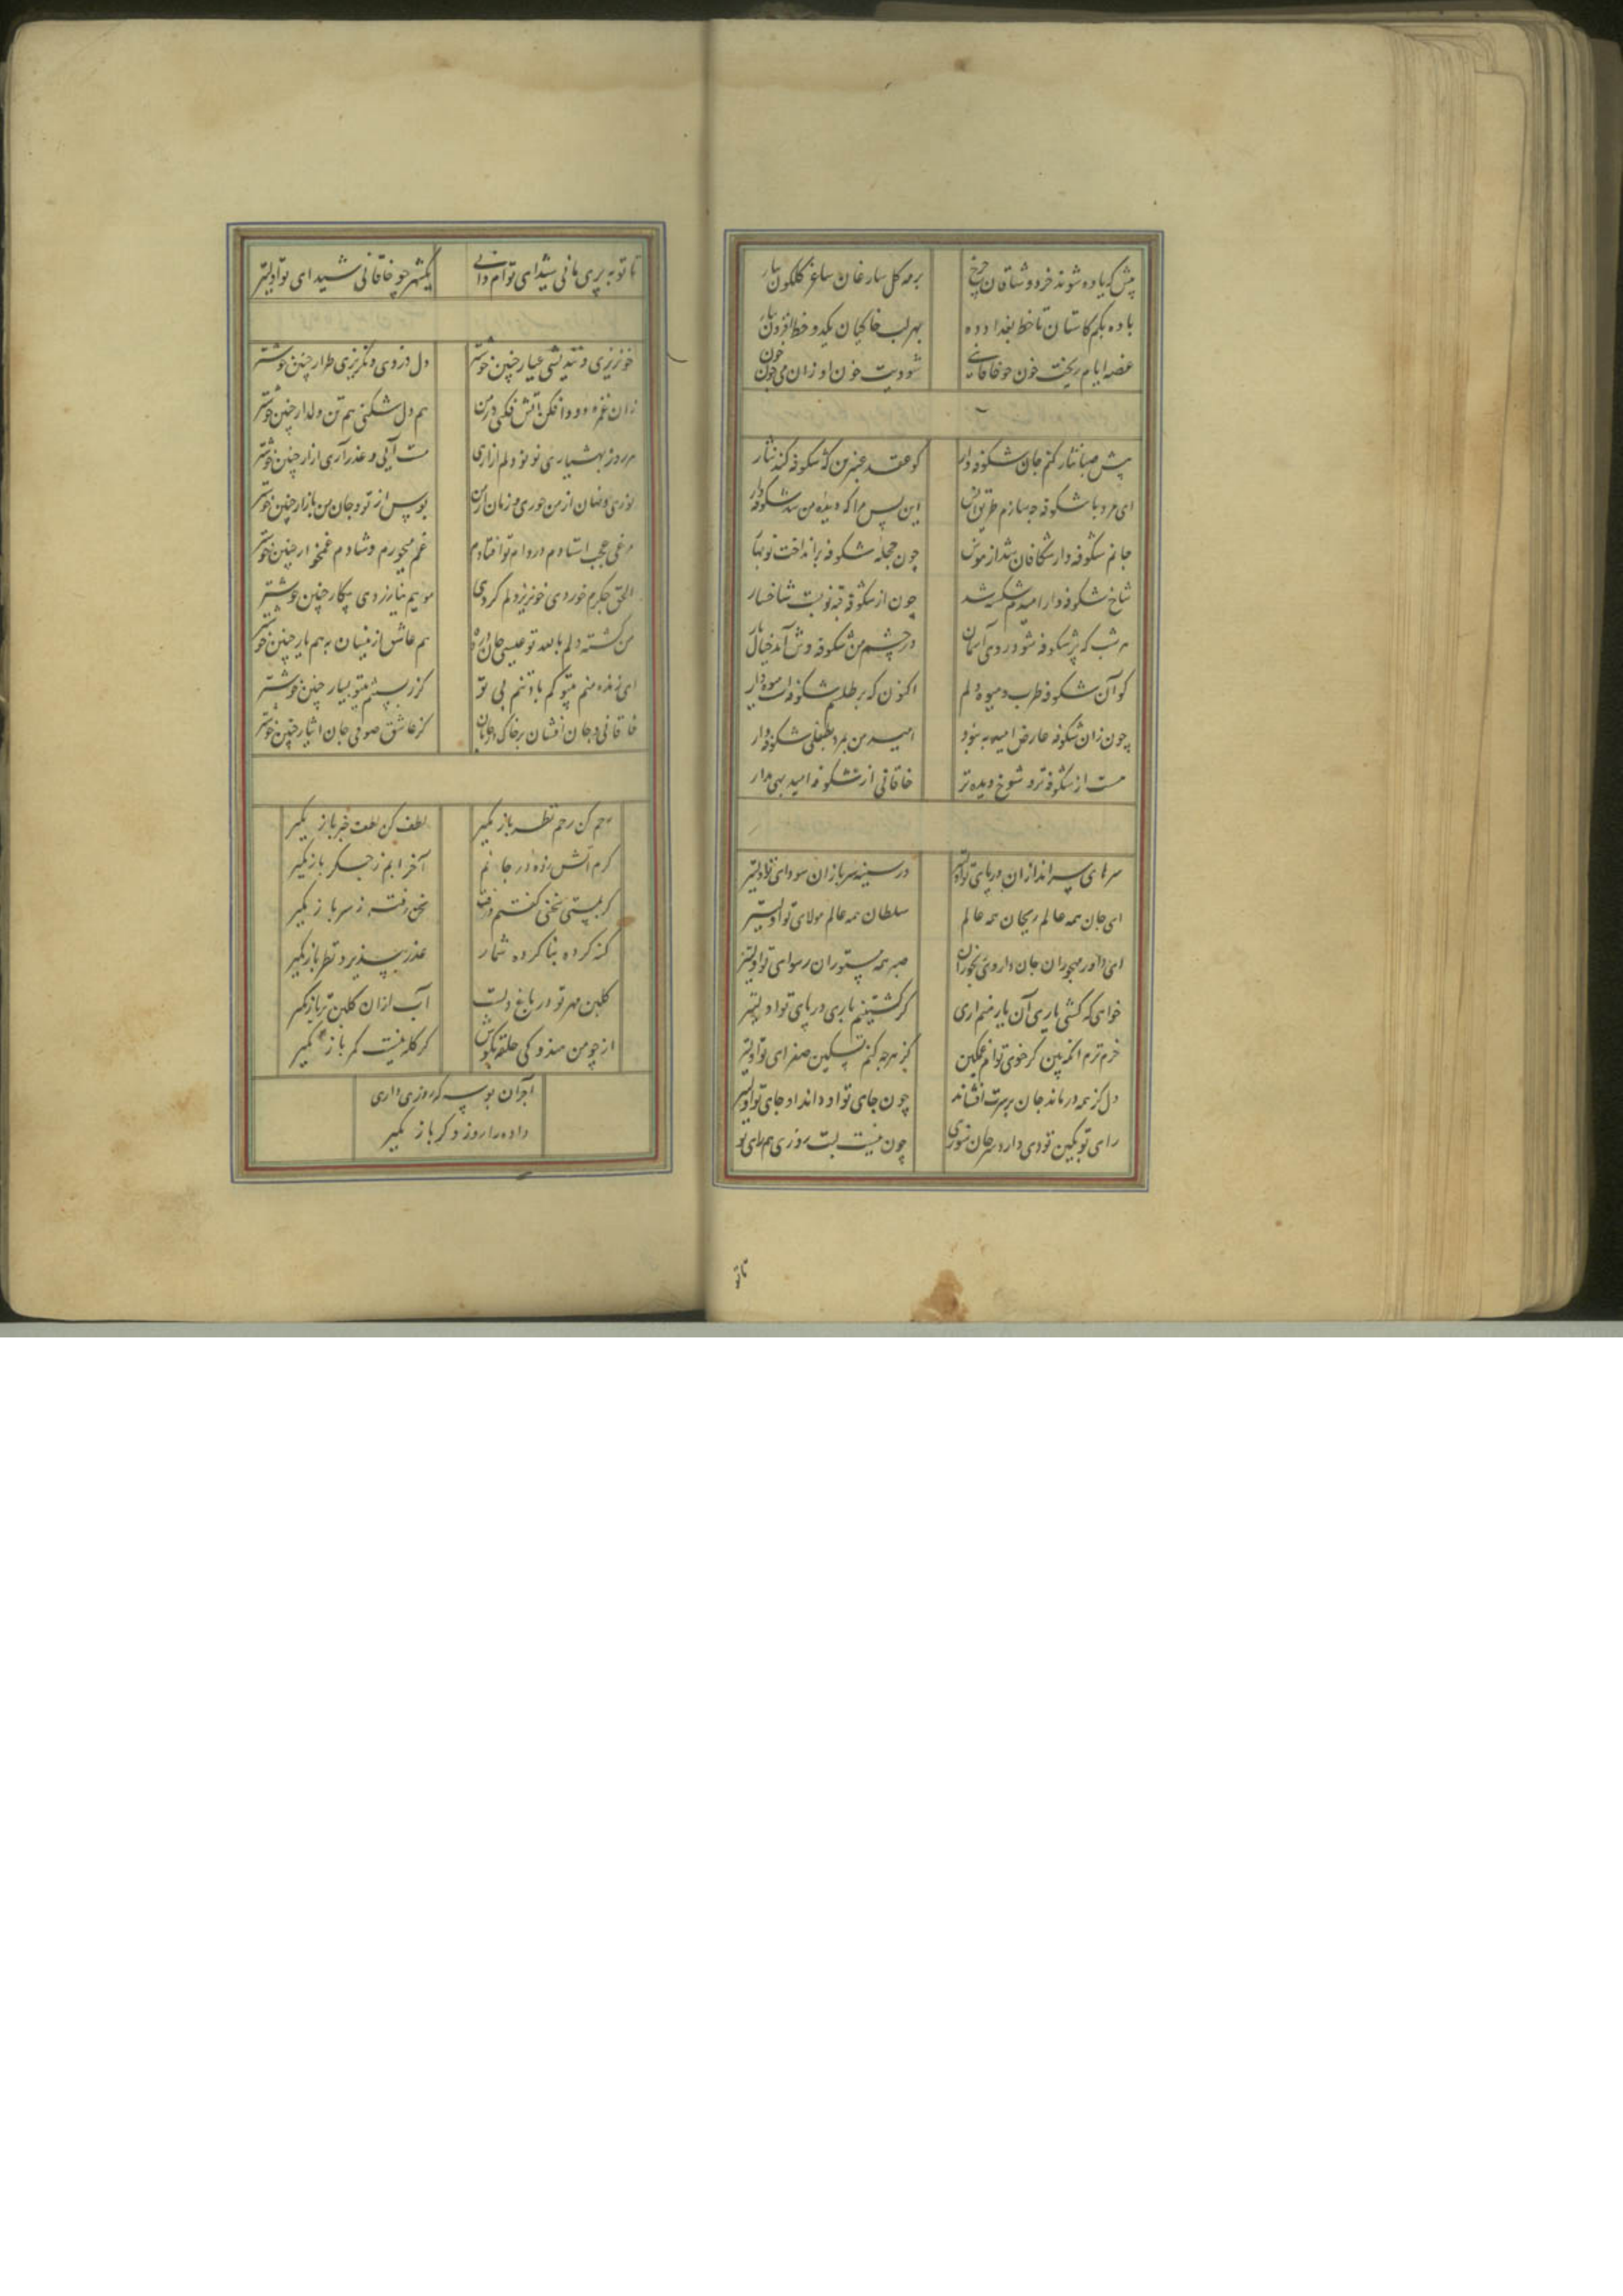 پیش که یاده شوند فردوشاقان چرخ
برمه کل سارغان ساغر کلکون بیار
باده بکم کاستان تا خط بغداد ده
بهر لب خاکیان یکدو خط افزون بیار
غصه ایام ریخت خون چو خاقانی
شو دیت خون او زان می چون خون
پیش صبا نثار کنم جان شکوفه دار
کو عقد عنبرین که شکوفه کند نثار
ای مرد با شکوفه چه سازم طریق انس
این بس مرا که دیده من شد شکوفه دار
جانم شکوفه دار شکافان شد از هوس
چون حجله شکوفه برانداخت نوبهار
شاخ شکوفه دار امیدم شکسته شد
چون از شکوفه قبه نو بست شاخسار
هر شب که پر شکوفه شود روی آسمان
در چشم من شکوفه وش آید خیال یار
کو آن شکوفه طرب و میوه دلم
اکنون که بر طلسم شکوفه است میوه دار
چون زان شکوفه عارض امید به نبود
امید من بمرد بطفلی شکوفه وار
هست از شکوفه نر و شوخ دیده تر
خاقانی از شکوفه امید بهی مدار
سرهای سراندازان در پای تو اولیتر
در سینه سربازان سودای تو اولیتر
ای جان همه عالم ریحان همه عالم
سلطان همه عالم مولای تو اولیتر
ای داور مهجوران جان داروی رنجوران
صبر همه مستوران رسوای تو اولیتر
خواهی که کشی یاری آن یار منم اری
کر کشتنیم باری در پای تو اولیتر
خرم ترم انکه بین کز خوی توام غمکین
کز هرچه کنم تسکین صفرای تو اولیتر
دل کز همه درماند جان بر سرت افشاند
چون جای تو او داند او جای تو اولیتر
رای تو بکین توزی دارد سر جان سوزی
چون نیست لبت روزی هم رای تو
تاتو
تا تو به پری مانی شیدای توام دانی
یکشهر چو خاقانی شیدای تو اولیتر
خونریزی و نندیشی عیار چنین خوشتر
دل دزدی و نکریزی طرار چنین خوشتر
زان غمزه دودافکن آتش فکنی در من
هم دل شکنی هم تن دلدار چنین خوشتر
هر روز بهشیاری نو نو دلم آزاری
مست آیی و عذر آری آزار چنین خوشتر
نوری و نهان از من حوری و رمان از من
بوس از تو و جان من بازار چنین خوشتر
مرغی عجب استادم در دام تو افتادم
غم میخورم و شادم غمخوار چنین خوشتر
الحق جکرم خوردی خونریز دلم کردی
موییم نیازردی پیکار چنین خوشتر
من کشته دلم بالله تو عیسی جان در ده
هم عاشق ازینسان به هم یار چنین خوشتر
ای زنده منم بیتو کم باد تنم بی تو
کز زیستنم بیتو بسیار چنین خوشتر
خاقانی و جان افشان بر خاک در جانان
کز عاشق صوفی جان ایثار چنین خوشتر
رحم کن رحم نظر باز مگیر
لطف کن لطف خبر باز مگیر
کرم آتش زده در جانم
آخر ابم ز جکر باز مگیر
کر بمستی سخنی گفتم رفت
سخن رفته ز سر باز مگیر
کنه کرده بنا کرده شمار
عذر بپذیر و نظر باز مگیر
کلبن مهر تو در باغ دلست
آب ازان کلبن تر باز مگیر
از چو من هندوکی حلقه بکوش
کر کله نیست کمر باز مگیر
آخر آن بوسه که روزی داری
داده را روز دگر باز مگیر